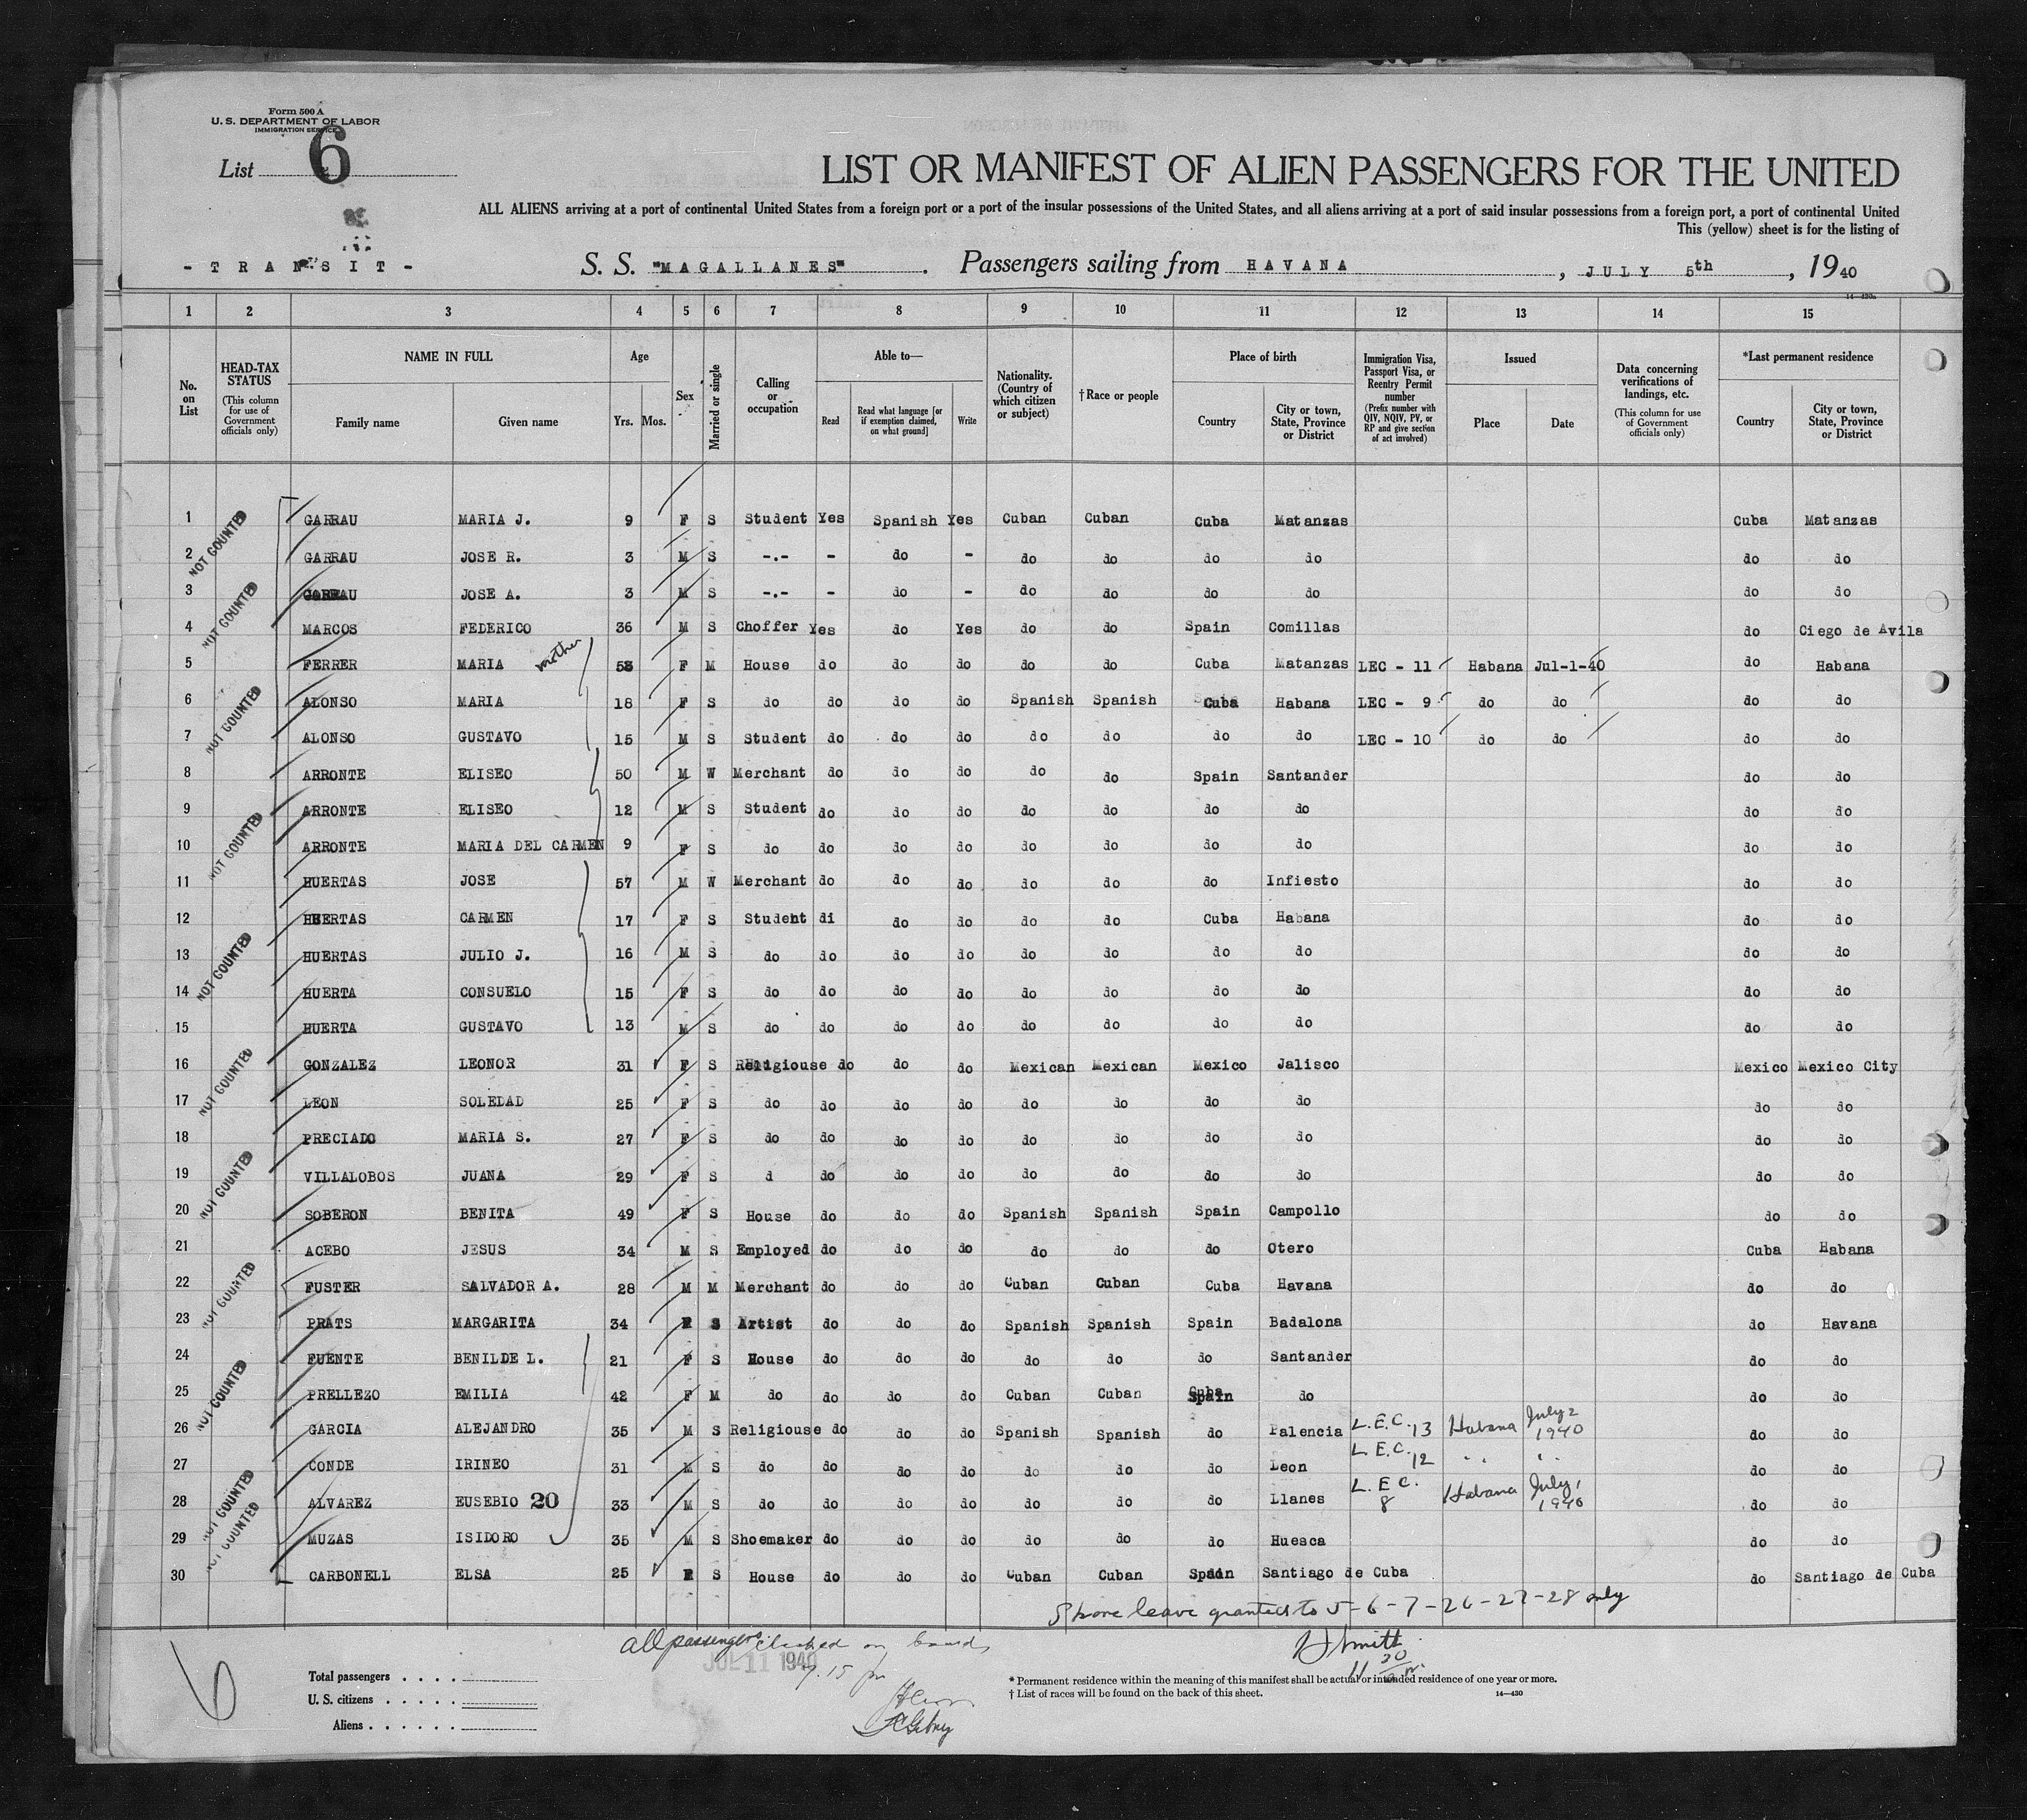 Form 500 A
U. S. DEPARTMENT OF LABOR
IMMIGRATION SERVICE
List 6
LIST OR MANIFEST OF ALIEN PASSENGERS FOR THE UNITED
ALL ALIENS arriving at a port of continental United States from a foreign port or a port of the insular possessions of the United States, and all aliens arriving at a port of said insular possessions from a foreign port, a port of continental United
This (yellow) sheet is for the listing of
- T R A N S I T - S. S. "MAGALLANES" . Passengers sailing from HAVANA , JULY 5th , 19 40
14—430a
1 2 3 4 5 6 7 8 9 10 11 12 13 14 15
No. on List
HEAD-TAX STATUS (This column for use of Government officials only)
NAME IN FULL Family name Given name
Age Yrs. Mos.
Sex
Married or single
Calling or occupation
Able to— Read Read what language [or if exemption claimed, on what ground] Write
Nationality. (Country of which citizen or subject)
†Race or people
Place of birth Country City or town, State, Province or District
Immigration Visa, Passport Visa, or Reentry Permit number (Prefix number with QIV, NQIV, PV, or RP and give section of act involved)
Issued Place Date
Data concerning verifications of landings, etc. (This column for use of Government officials only)
*Last permanent residence Country City or town, State, Province or District
1 NOT COUNTED GARRAU MARIA J. 9 F S Student Yes Spanish Yes Cuban Cuban Cuba Matanzas Cuba Matanzas
2 GARRAU JOSE R. 3 M S -.- - do - do do do do do do
3 NOT COUNTED GARRAU JOSE A. 3 M S -.- - do - do do do do do do
4 MARCOS FEDERICO 36 M S Choffer Yes do Yes do do Spain Comillas do Ciego de Avila
5 FERRER MARIA mother 58 F M House do do do do do Cuba Matanzas LEC - 11 Habana Jul-1-40 do Habana
6 NOT COUNTED ALONSO MARIA 18 F S do do do do Spanish Spanish Cuba Habana LEC - 9 do do do do
7 ALONSO GUSTAVO 15 M S Student do do do do do do do LEC - 10 do do do do
8 ARRONTE ELISEO 50 M W Merchant do do do do do Spain Santander do do
9 ARRONTE ELISEO 12 M S Student do do do do do do do do do
10 NOT COUNTED ARRONTE MARIA DEL CARMEN 9 F S do do do do do do do do do do
11 HUERTAS JOSE 57 M W Merchant do do do do do do Infiesto do do
12 HUERTAS CARMEN 17 F S Student di do do do do Cuba Habana do do
13 NOT COUNTED HUERTAS JULIO J. 16 M S do do do do do do do do do do
14 HUERTA CONSUELO 15 F S do do do do do do do do do do
15 HUERTA GUSTAVO 13 M S do do do do do do do do do do
16 NOT COUNTED GONZALEZ LEONOR 31 F S Religiouse do do do Mexican Mexican Mexico Jalisco Mexico Mexico City
17 LEON SOLEDAD 25 F S do do do do do do do do do do
18 PRECIADO MARIA S. 27 F S do do do do do do do do do do
19 NOT COUNTED VILLALOBOS JUANA 29 F S d do do do do do do do do do
20 SOBERON BENITA 49 F S House do do do Spanish Spanish Spain Campollo do do
21 ACEBO JESUS 34 M S Employed do do do do do do Otero Cuba Habana
22 NOT COUNTED FUSTER SALVADOR A. 28 M M Merchant do do do Cuban Cuban Cuba Havana do do
23 PRATS MARGARITA 34 F S Artist do do do Spanish Spanish Spain Badalona do Havana
24 FUENTE BENILDE L. 21 F S House do do do do do do Santander do do
25 NOT COUNTED PRELLEZO EMILIA 42 F M do do do do Cuban Cuban Cuba Spain do do do
26 GARCIA ALEJANDRO 35 M S Religiouse do do do Spanish Spanish do Palencia L.E.C. 13 Habana July 2 1940 do do
27 CONDE IRINEO 31 M S do do do do do do do Leon L.E.C. 12 " " " do do
28 NOT COUNTED ALVAREZ EUSEBIO 20 33 M S do do do do do do do Llanes L.E.C. 8 Habana July 1 1940 do do
29 NOT COUNTED MUZAS ISIDORO 35 M S Shoemaker do do do do do do Huesca do do
30 CARBONELL ELSA 25 F S House do do do Cuban Cuban Spain Santiago de Cuba do Santiago de Cuba
Shore leave granted to 5-6-7-26-27-28 only
all passengers checked on board H Smith
JUL 11 1940 7.15 pm 11 30
6
Total passengers . . . .
U. S. citizens . . . . .
Aliens . . . . . .
* Permanent residence within the meaning of this manifest shall be actual or intended residence of one year or more.
† List of races will be found on the back of this sheet. 14—430